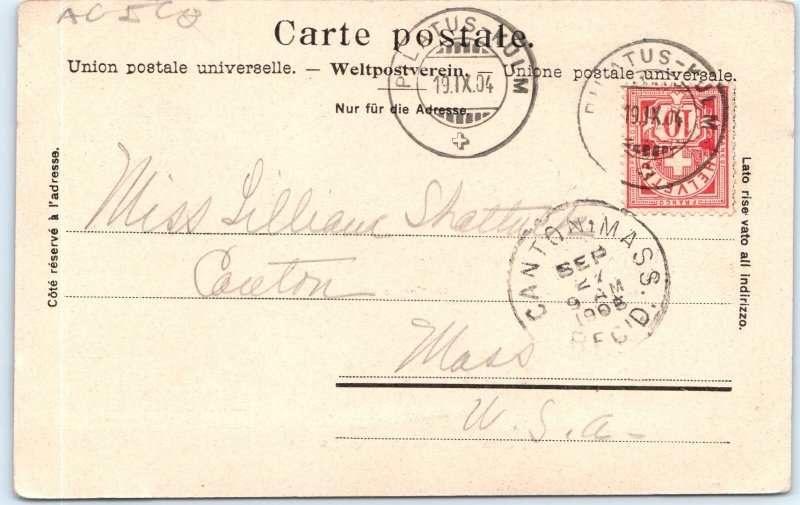 AC 5CB
Carte postale.
Union postale universelle. — Weltpostverein. Unione postale universale.
Nur für die Adresse.
PILATUS-KULM
19.IX.04
PILATUS-KULM
19.IX.04
10
HELVETIA
FRANCO
Côté réservé à l'adresse.
Lato rise vato all indirizzo.
Miss Lillian
Canton
Mass
U.S.a-
CANTON, MASS.
SEP
27
9 AM
REC'D.